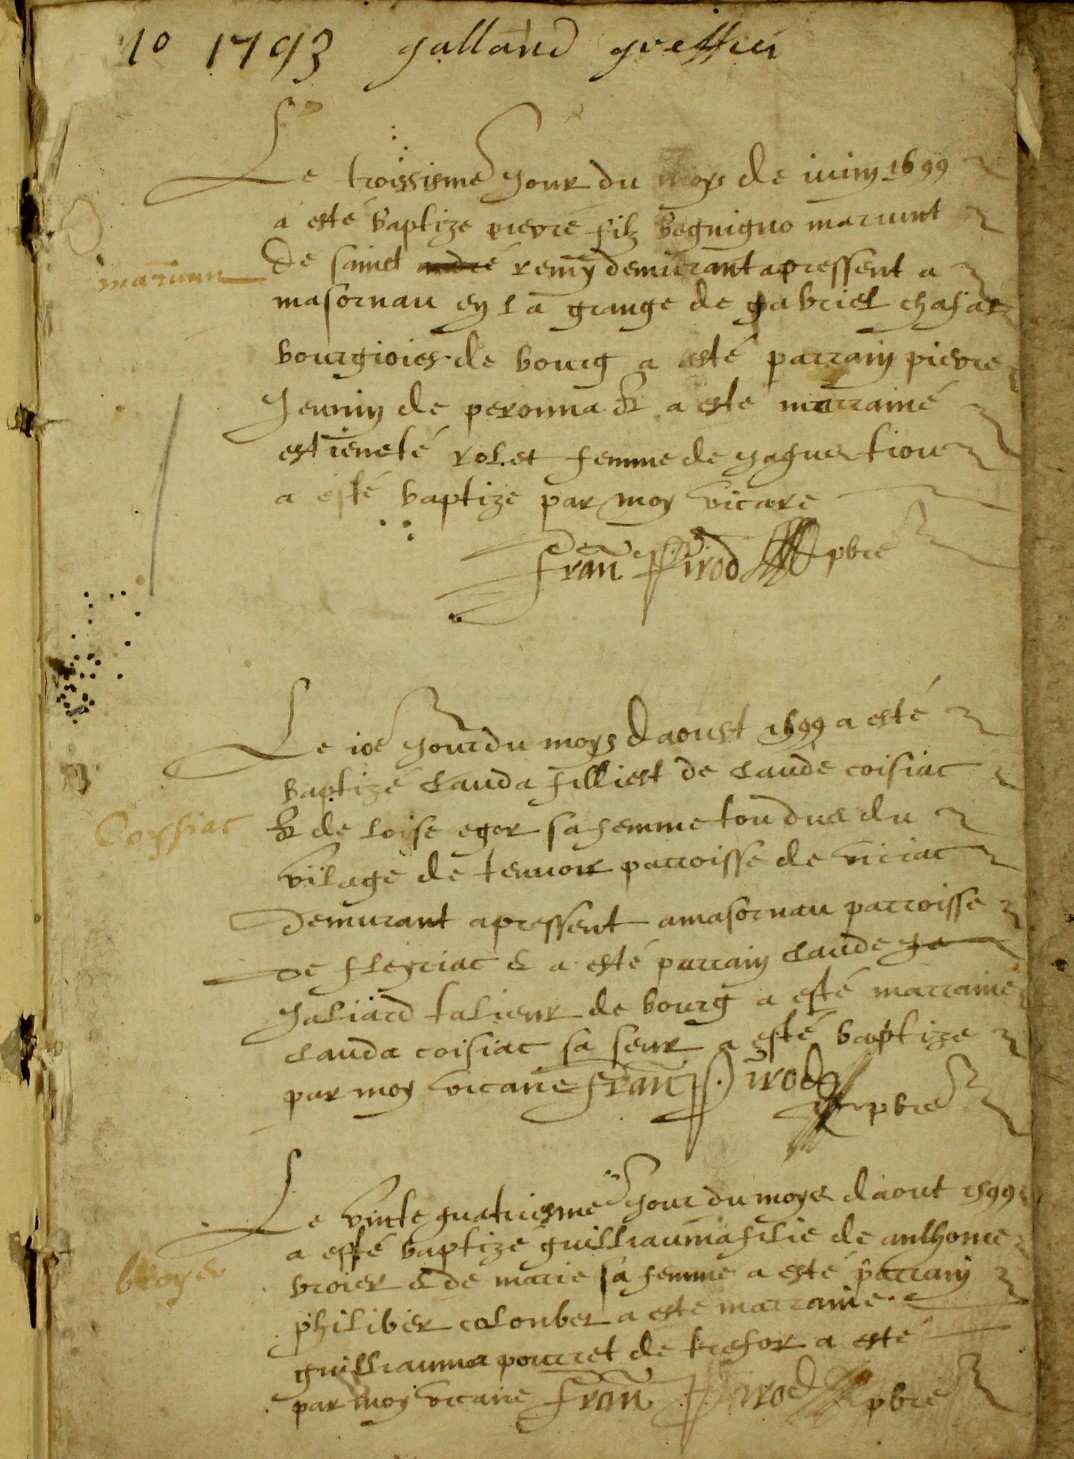 10 1793 galland greffier
Le troissisme Jour du moys de iuing 1699
a esté baptize pierre filz begnigno marunt
de sainct andre remy demurant apressent a
marunn
masornau en la grange de gabriel chasat
bourgioies de bourg a esté parrain pierre
Jennin de peronna & a este marraine
estieneté rolet femme de Jaque tione
a esté baptize par moy vicare
fran pirod pbre
Le ioe Jour du moys daoust 1699 a esté
baptizé clauda filliest de claude coisiac
Coysiac
& de loise eger sa femme tou du
vilage de tenuon parroisse de viriac
demurant apressent amasornau parroisse
de fleyriac & a esté parrain claude ga
galiard talieur de bourg a esté marraine
clauda coisiac sa seur a esté baptize
par moy vicarie fran pirod
pbre
Le vinte quatriesme Jour du moys daout 1699
a esté baptize guilliauma filie de anthoine
broyer
broier & de marie sa femme a esté parrain
philiber colonber a este marraine
guilliauma pourret de trefor a esté
par moy vicarie fran pirod pbre